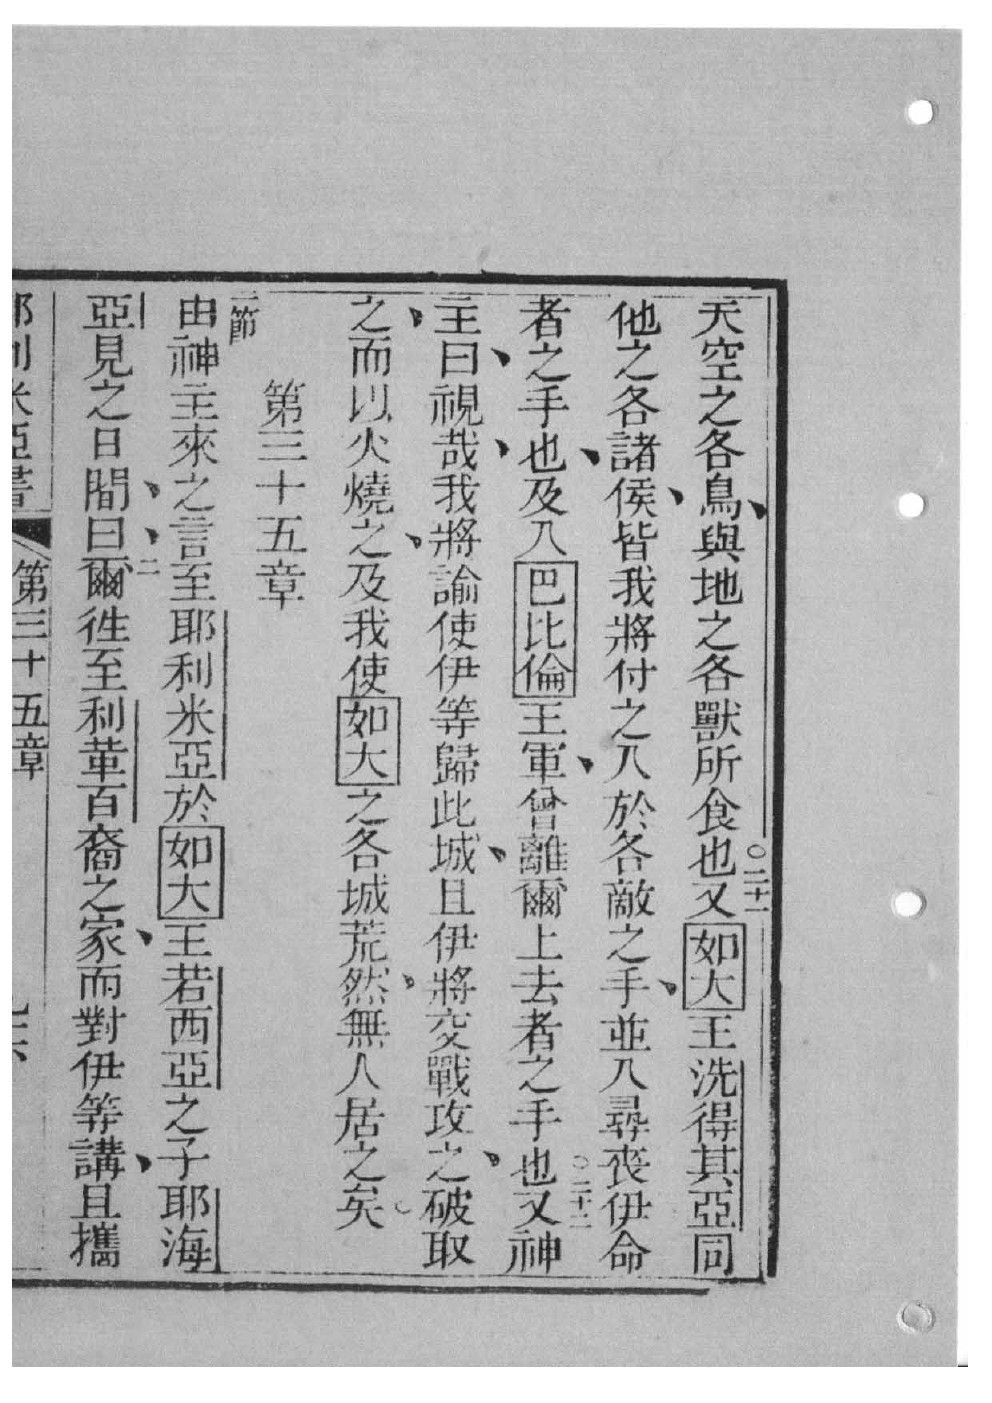 天空之各鳥、與地之各獸所食也○二十一又如大王洗得其亞同
他之各諸侯、皆我將付之入於各敵之手、並入尋喪伊命
者之手也、及入巴比倫王軍、曾離爾上去者之手也○二十二又神
主曰、視哉、我將諭使伊等歸此城、且伊將交戰攻之、破取
之、而以火燒之、及我使如大之各城荒然、無人居之矣○
第三十五章
一節由神主來之言至耶利米亞於如大王若西亞之子耶海
亞見之日間、曰、二爾徃至利革百裔之家、而對伊等講、且攜
耶利米亞書 第三十五章